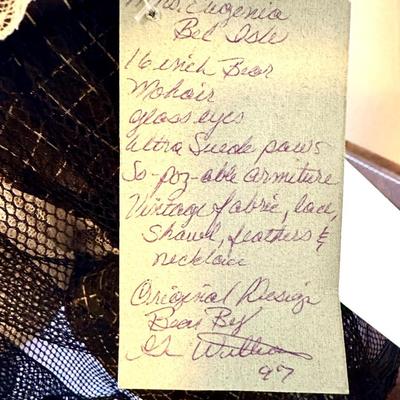 Mrs. Eugenia
Bel Isle
16 inch Bear
Mohair
glass eyes
Ultra Suede paws
So-poz-able armiture
Vintage fabric, lace,
Shawl, feathers &
necklace
Original Design
Bear By
97